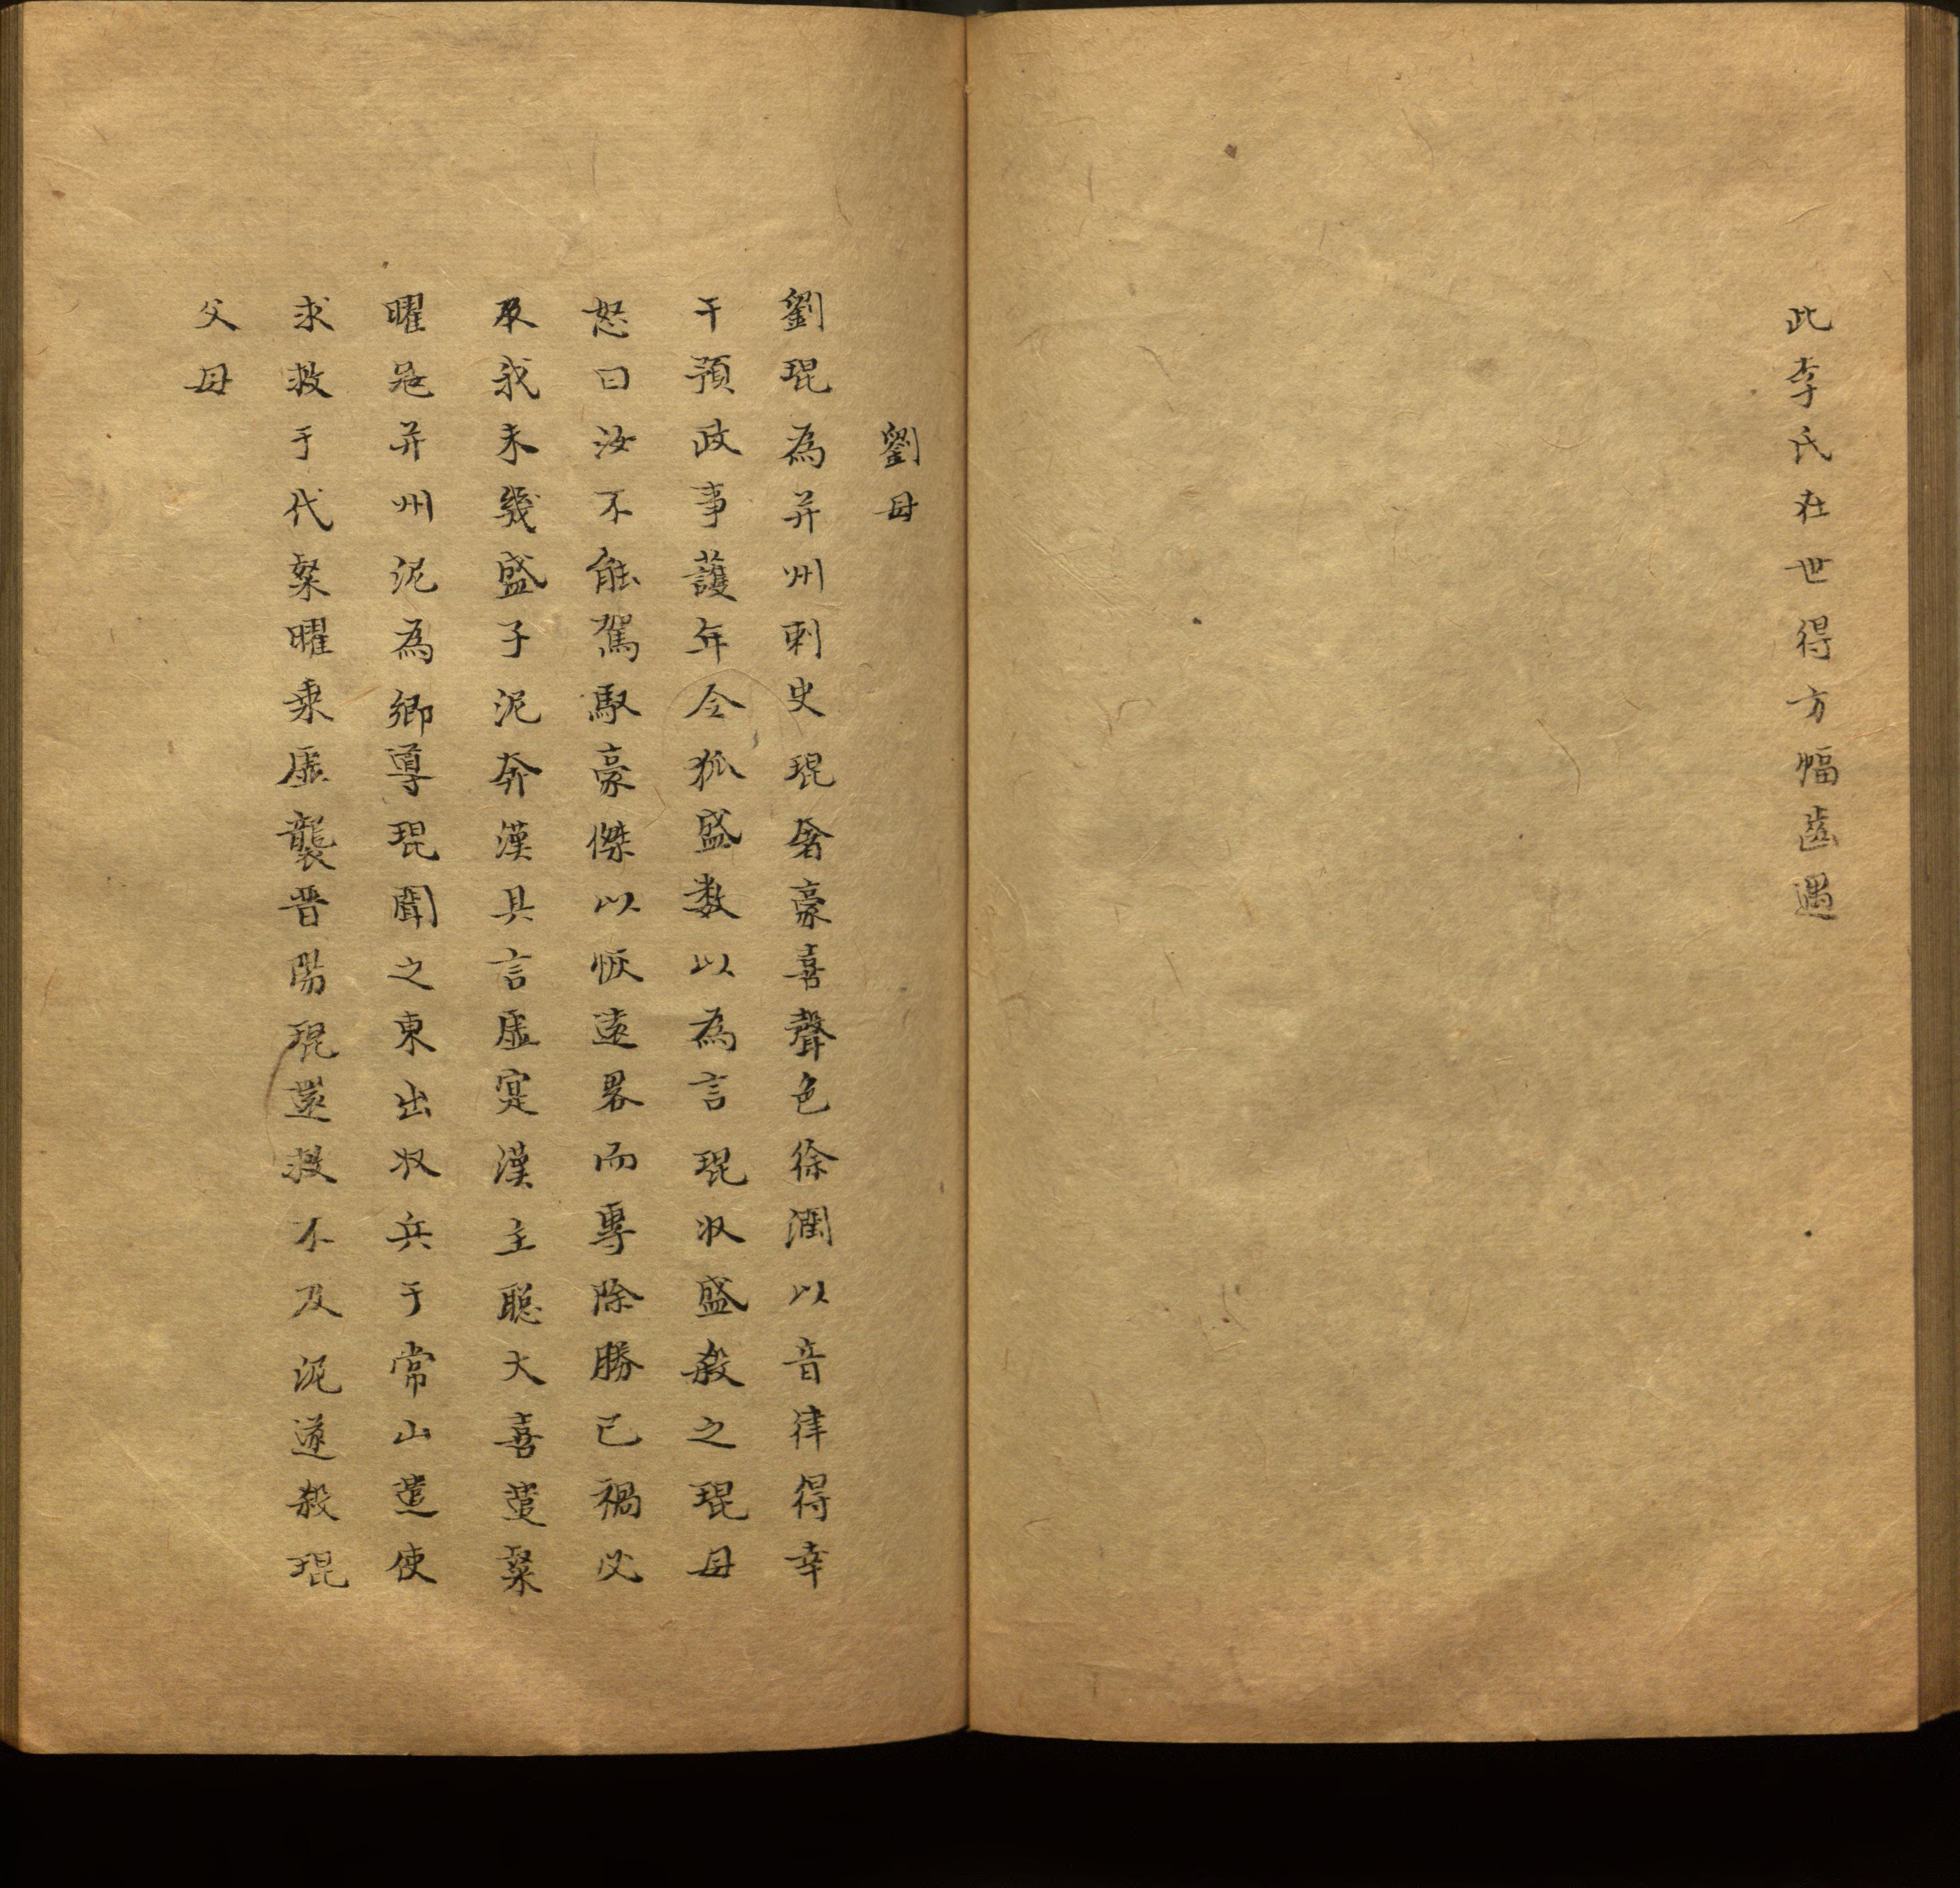 此李氏在世得方幅齒遇
劉母
劉琨為并州刺史琨奢豪喜聲色徐潤以音律得幸
干預政事護年令狐盛数以為言琨収盛殺之琨母
怒曰汝不能駕馭豪傑以恢遠畧而專除勝己禍必
及我未幾盛子泥奔漢具言虛寔漢主聰大喜遣粲
曜冦并州泥為鄉導琨聞之東出収兵于常山遣使
求救于代粲曜乘虛襲晋陽琨還救不及泥遂殺琨
父母